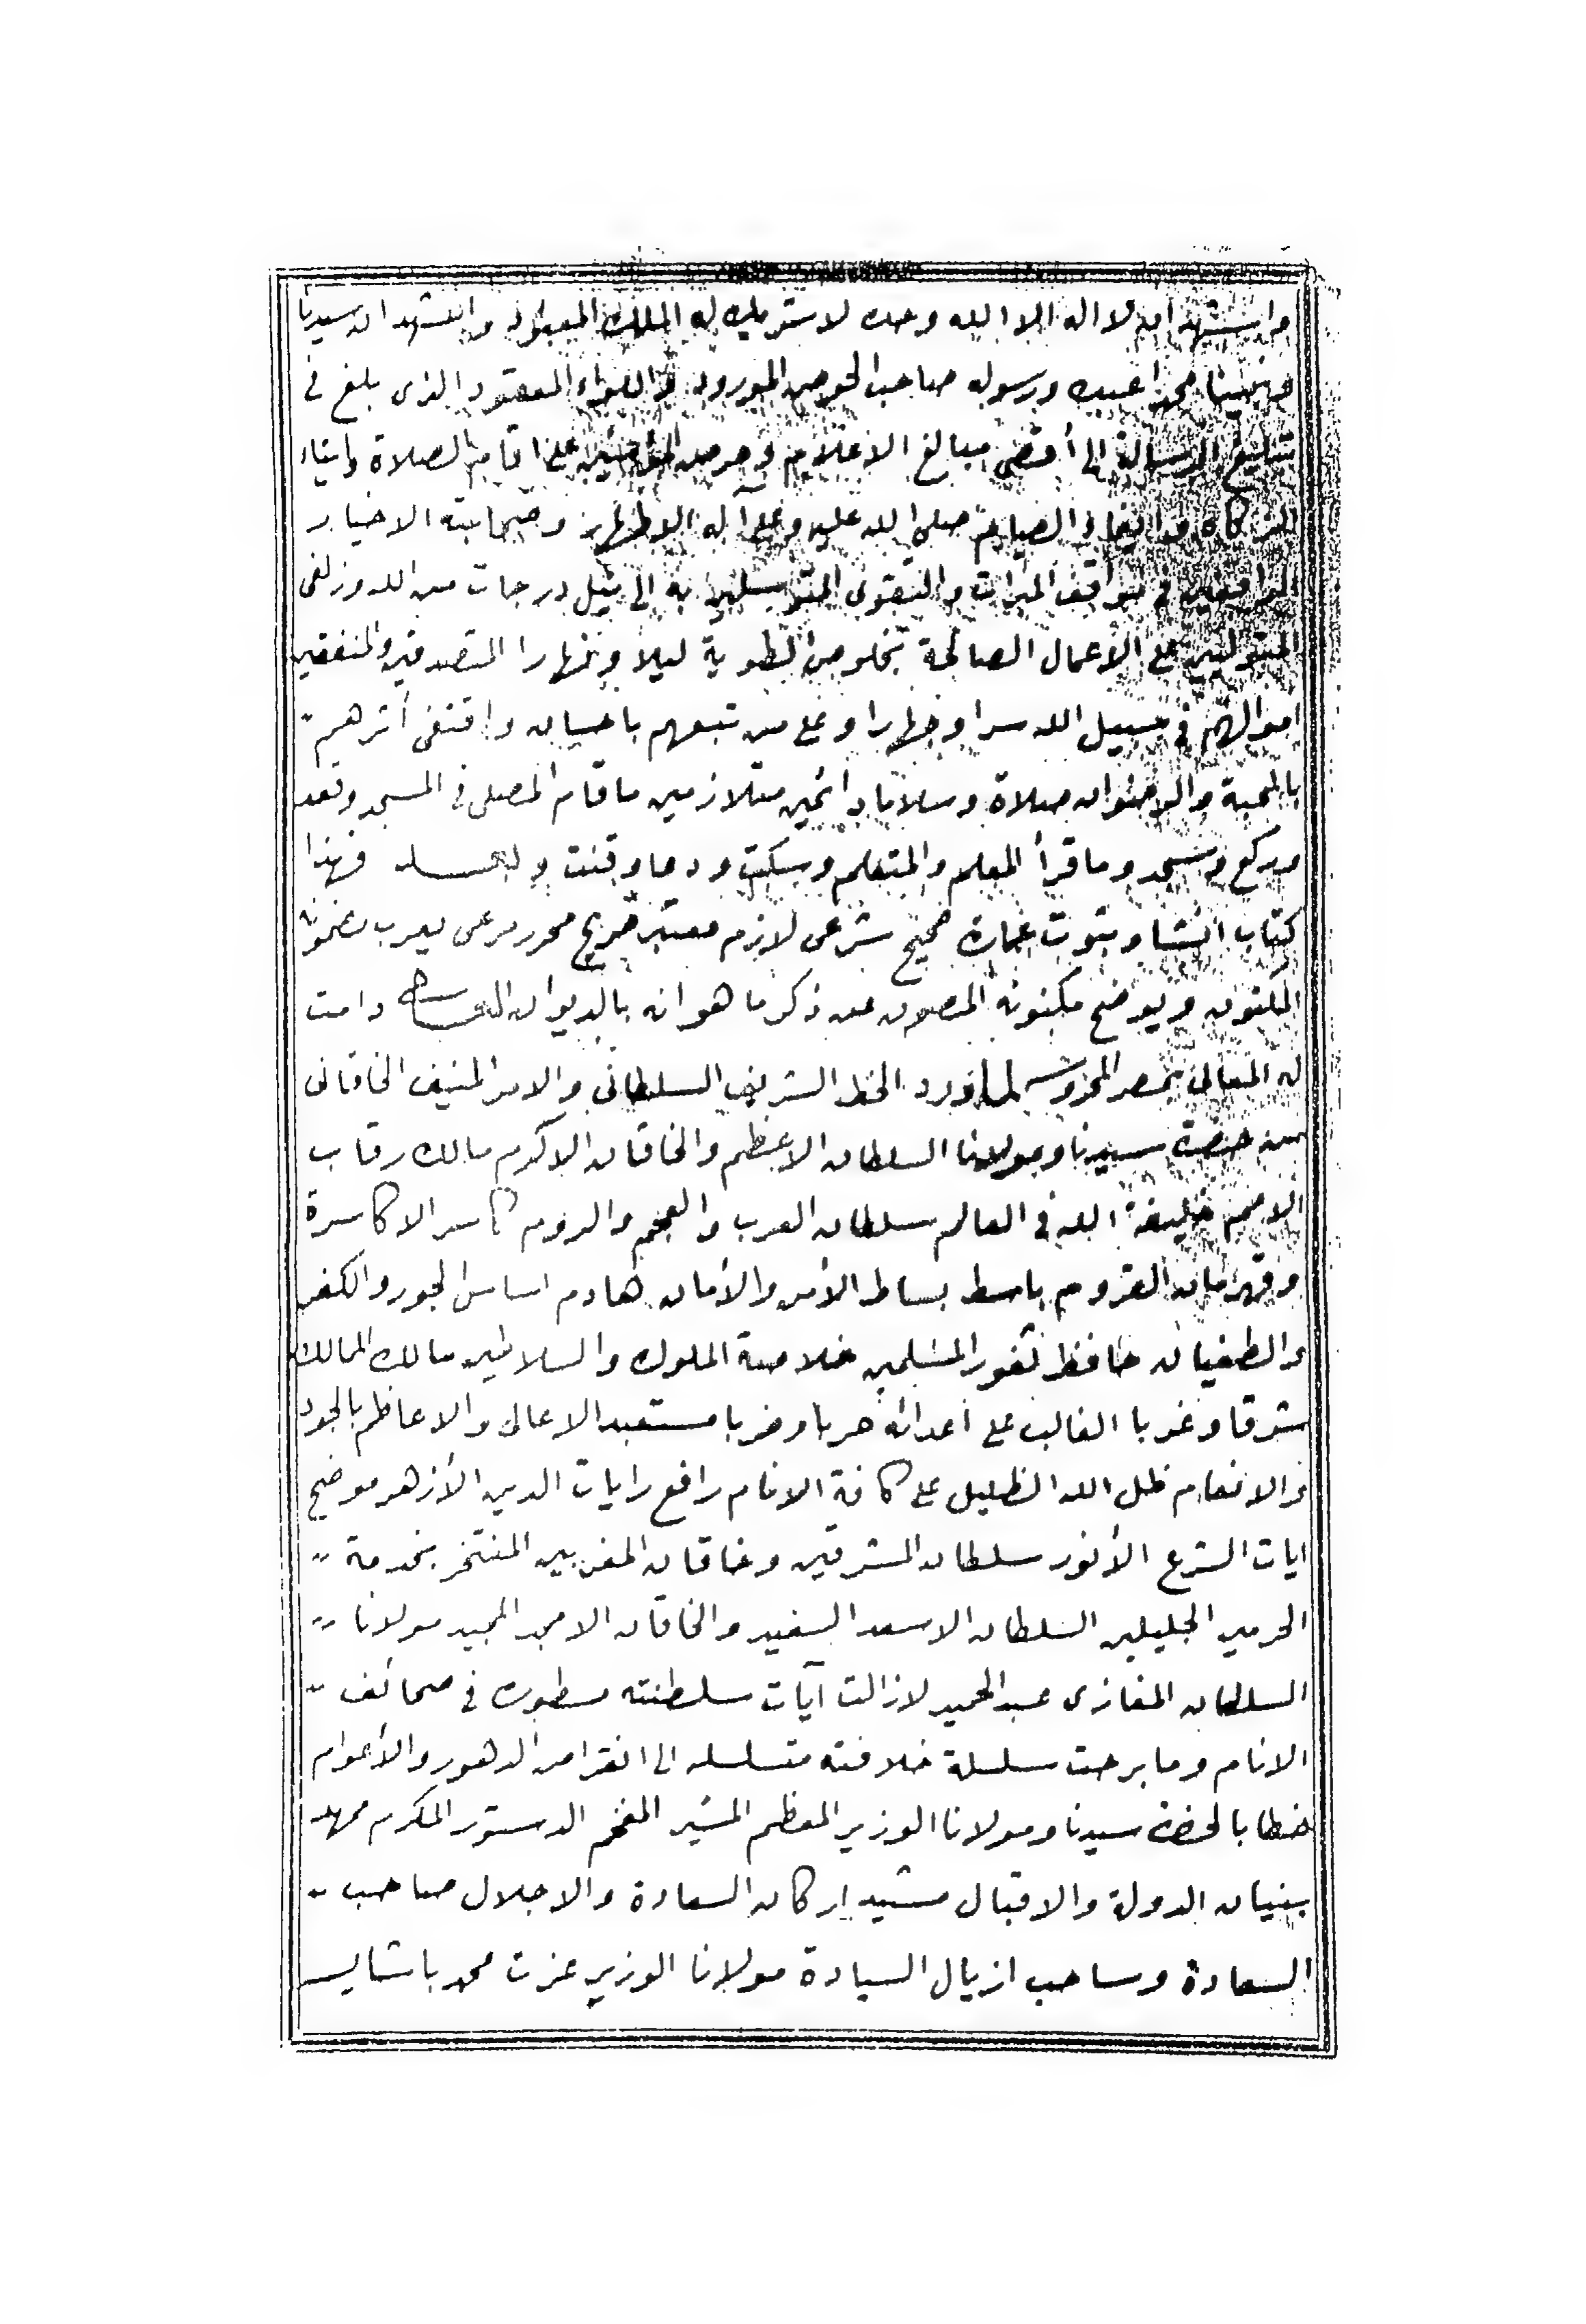 واشهد ان لا اله الا الله وحده لا شريك له الملك المعبود واشهد ان سيدنا
ونبينا محمدا عبده ورسوله صاحب الحوض المورود واللواء المعقود الذى بلغ فى
تبليغ الرسالة الى أقصى مبالغ الاعلام وحرض المؤمنين على اقام الصلاة وايتاء
الزكاة والصيام صلى الله عليه وعلى آله الاطهار وصحابته الاخيار
فى مواقف المبرات والتقوى المتوسلين به الى نيل درجات من الله وزلفى
على الاعمال الصالحة بخلوص الطوية ليلا ونهارا المتصدقين والمنفقين
اموالهم فى سبيل الله سرا وجهارا وعلى من تبعهم باحسان واقتفى أثرهم
بالمحبة والرضوان صلاة وسلاما دائمين متلازمين ما قام المصلى فى المسجد وقعد
وركع وسجد وما قرأ المعلم والمتعلم وسكت ودعا وقنت وبعد فهذا
كتاب انشا وثبوت عمارة صحيح شرعى لازم معتبر صريح محرر مرعى يعرب مضمونه
المكنون ويوضح مكنونه المصون عن ذكر ما هو انه بالديوان العالى دامت
له المعالى بمصر المحروسة لما ورد الخط الشريف السلطانى والامر المنيف الخاقانى
من حضرة سيدنا ومولانا السلطان الاعظم والخاقان الاكرم مالك رقاب
الامم خليفة الله فى العالم سلطان العرب والعجم والروم كاسر الاكاسرة
وقهرمان القروم باسط بساط الأمن والأمان هادم اساس الجور والكفر
والطغيان حافظ ثغور المسلمين خلاصة الملوك والسلاطين مالك الممالك
شرقا وغربا الغالب على اعدائه حربا وضربا مستعبد الاعالى والاعاظم بالجود
والانعام ظل الله الظليل على كافة الانام رافع رايات الدين الأزهر موضح
ايات الشرع الأنور سلطان المشرقين وخاقان المغربين المفتخر بخدمة
الحرمين الجليلين السلطان الاسعد السعيد والخاقان الامجد المجيد مولانا
السلطان المغازى عبد الحميد لازالت آيات سلطنته مسطورة فى صحائف
الانام وما برحت سلسلة خلافته متسلسله الى انقراض الدهور والأعوام
خطابا لحضرة سيدنا ومولانا الوزير المعظم المشير المفخم الدستور المكرم ممهد
بنيان الدولة والاقبال مشيد اركان السعادة والاجلال صاحب
السعادة وساحب ازيال السيادة مولانا الوزير عزت محمد باشا يسر